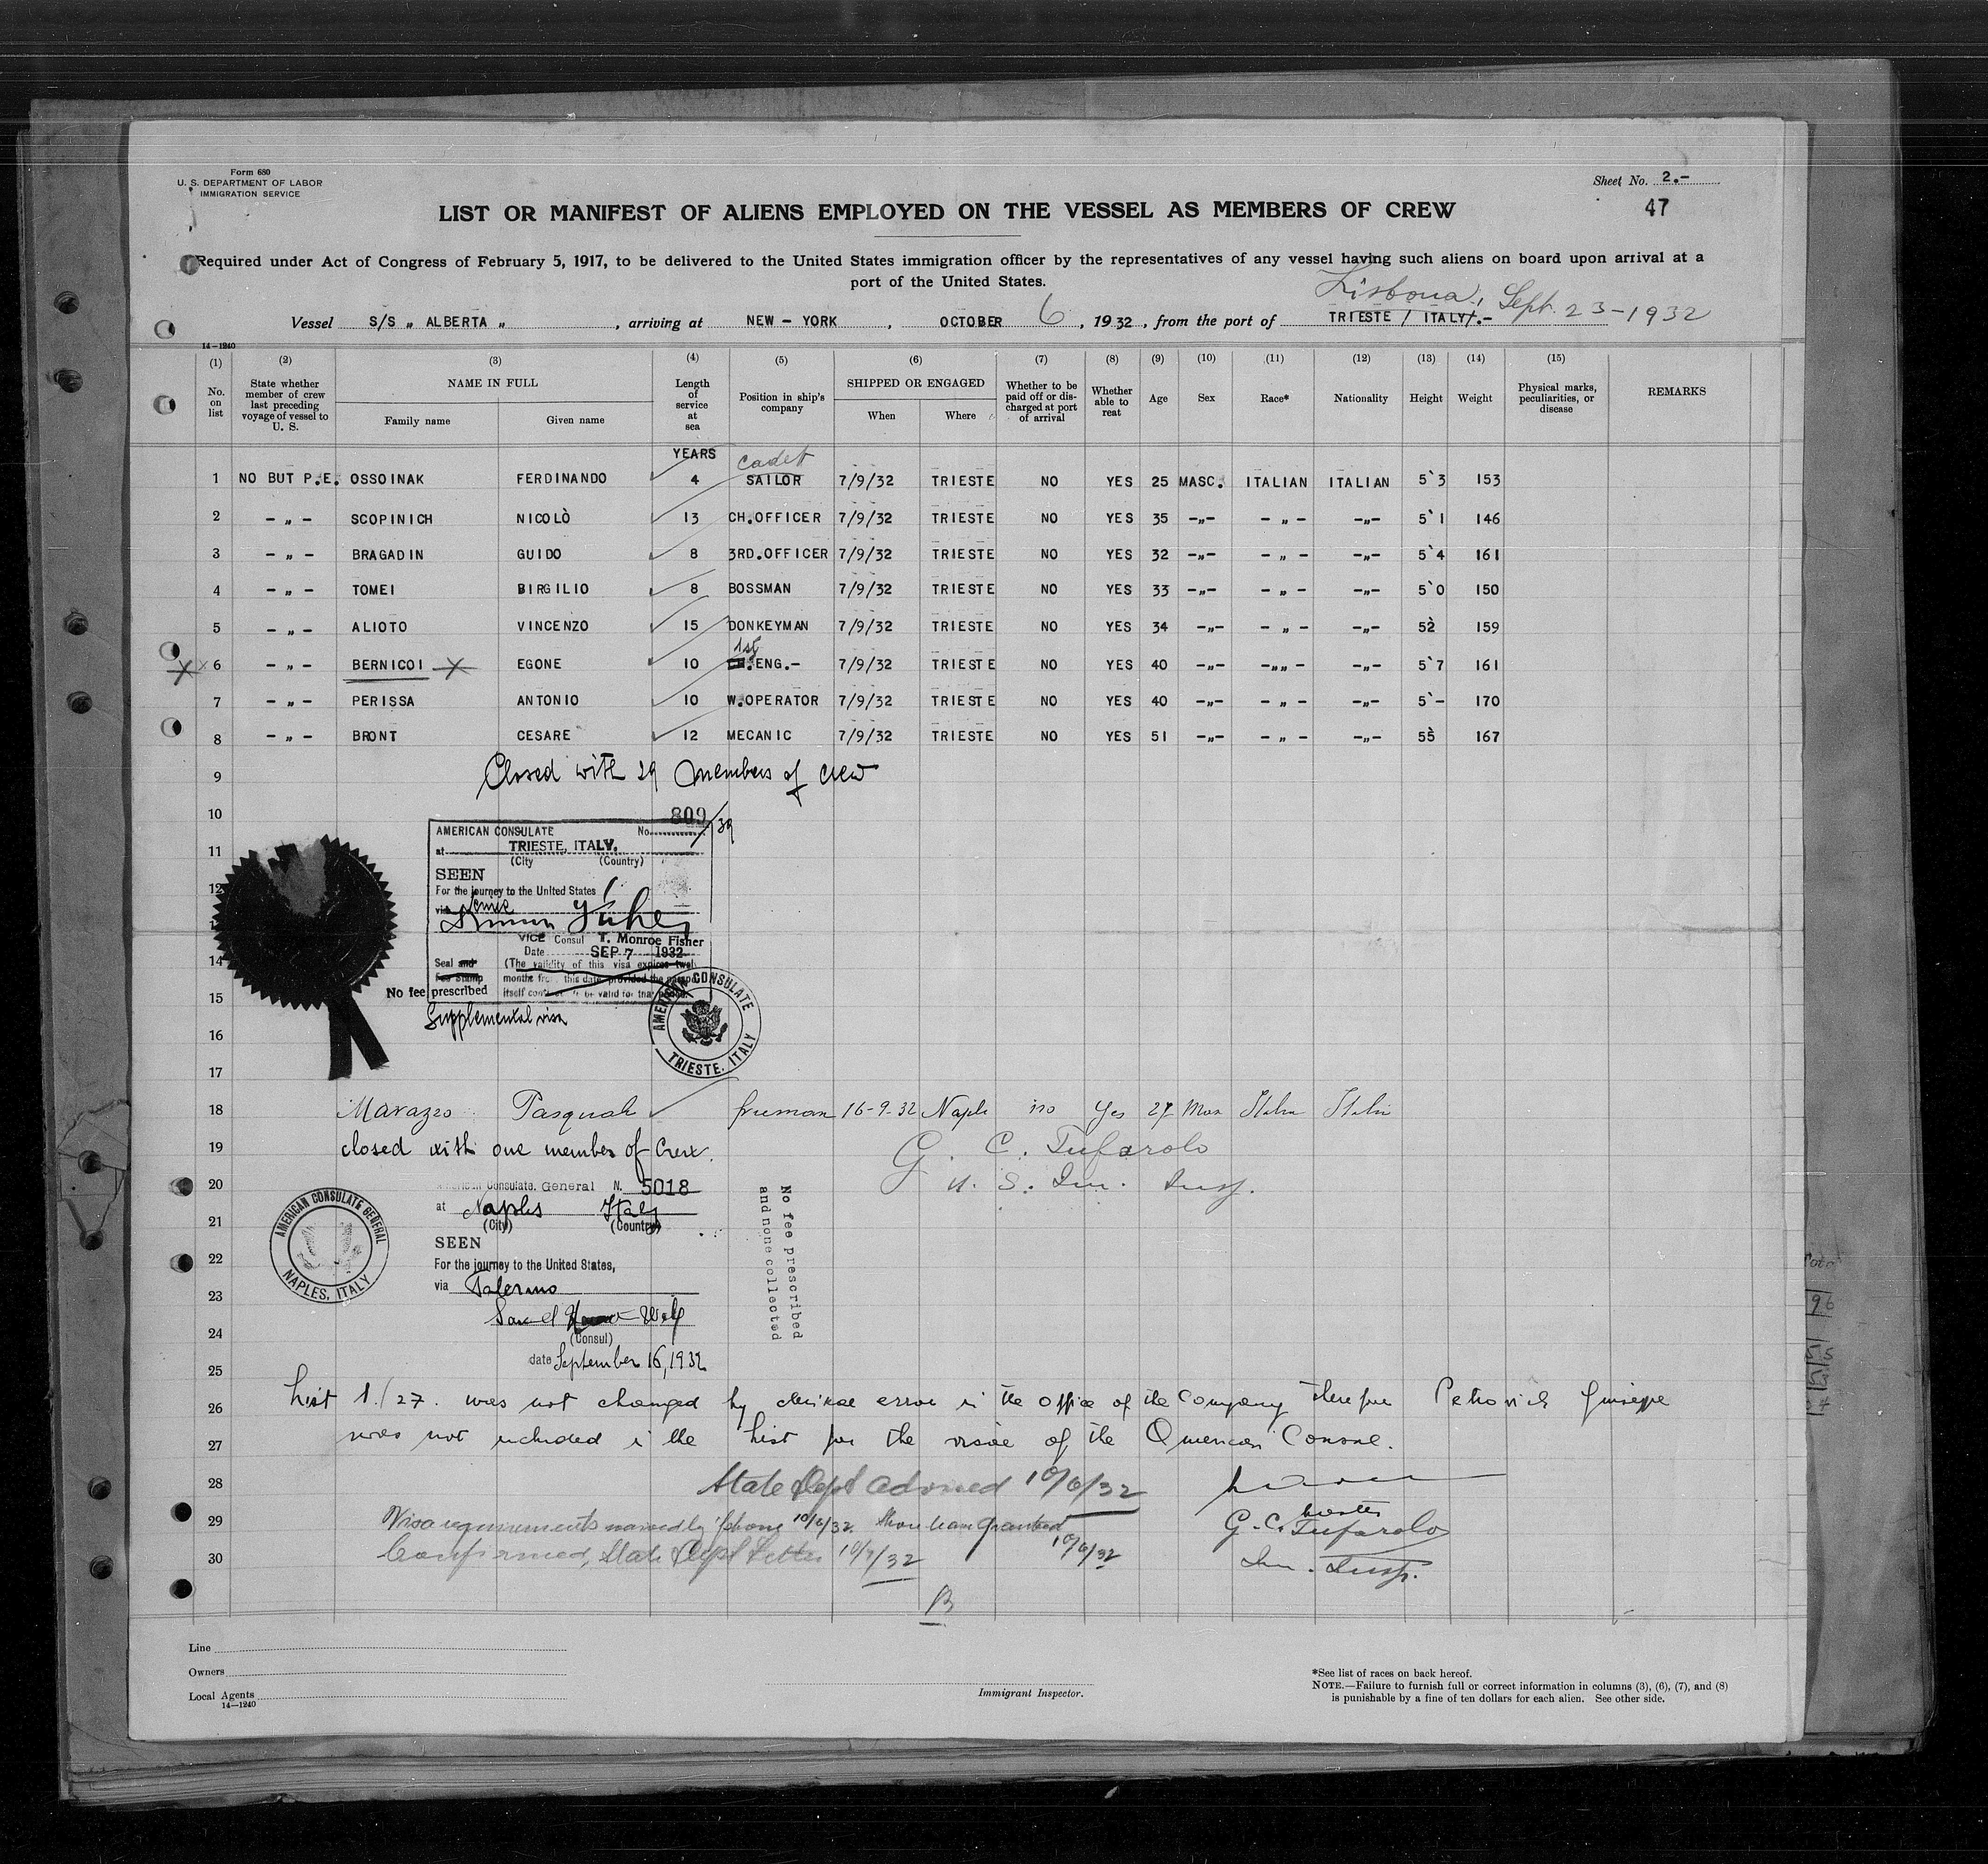 Form 680
U. S. DEPARTMENT OF LABOR
IMMIGRATION SERVICE
Sheet No. 2.-
47
LIST OR MANIFEST OF ALIENS EMPLOYED ON THE VESSEL AS MEMBERS OF CREW
Required under Act of Congress of February 5, 1917, to be delivered to the United States immigration officer by the representatives of any vessel having such aliens on board upon arrival at a
port of the United States.
Lisbona, Sept. 23-1932
Vessel S/S „ ALBERTA „ , arriving at NEW - YORK , OCTOBER 6 , 1932 , from the port of TRIESTE / ITALY/.-
14-1240
(1) (2) (3) (4) (5) (6) (7) (8) (9) (10) (11) (12) (13) (14) (15)
No. on list State whether member of crew last preceding voyage of vessel to U. S. NAME IN FULL Family name Given name Length of service at sea Position in ship's company SHIPPED OR ENGAGED When Where Whether to be paid off or discharged at port of arrival Whether able to reat Age Sex Race* Nationality Height Weight Physical marks, peculiarities, or disease REMARKS
YEARS cadet
1 NO BUT P.E. OSSOINAK FERDINANDO 4 SAILOR 7/9/32 TRIESTE NO YES 25 MASC. ITALIAN ITALIAN 5`3 153
2 - „ - SCOPINICH NICOLÒ 13 CH.OFFICER 7/9/32 TRIESTE NO YES 35 -„- - „ - -„- 5`1 146
3 - „ - BRAGADIN GUIDO 8 3RD.OFFICER 7/9/32 TRIESTE NO YES 32 -„- - „ - -„- 5`4 161
4 - „ - TOMEI BIRGILIO 8 BOSSMAN 7/9/32 TRIESTE NO YES 33 -„- - „ - -„- 5`0 150
5 - „ - ALIOTO VINCENZO 15 DONKEYMAN 7/9/32 TRIESTE NO YES 34 -„- - „ - -„- 5`2 159
1st
x 6 - „ - BERNICOI X EGONE 10 CH.ENG.- 7/9/32 TRIESTE NO YES 40 -„- -„„ - -„- 5`7 161
7 - „ - PERISSA ANTONIO 10 W.OPERATOR 7/9/32 TRIESTE NO YES 40 -„- - „ - -„- 5`- 170
8 - „ - BRONT CESARE 12 MECANIC 7/9/32 TRIESTE NO YES 51 -„- - „ - -„- 5`5 167
9 Closed with 29 members of crew
10
11
12
14
15
16
17
AMERICAN CONSULATE No. 809/39
at TRIESTE, ITALY.
(City (Country)
SEEN
For the journey to the United States
via
VICE Consul T. Monroe Fisher
Date SEP 7 1932
Seal and (The validity of this visa expires twel
Fee Stamp months from this date provided the passpo
No fee prescribed
Supplemental visa
AMERICAN CONSULATE
TRIESTE. ITALY
18 Marazzo Pasquale fireman 16-9-32 Naple no Yes 27 Mas Italin Italin
19 closed with one member of Crew.
G. C. Tufarolo
U. S. Im. Insp.
20
21
22
23
24
25
American Consulate. General N. 5018
at Naples Italy
(City) (Country)
SEEN
For the journey to the United States,
via Palermo
(Consul)
date September 16, 1932
AMERICAN CONSULATE GENERAL
NAPLES, ITALY
No fee prescribed
and none collected
26 List 1./27. was not changed by clerical error in the office of the Company therefore Petrovich Giuseppe
27 was not included i the list for the visae of the American Consul.
28 State Dept advised 10/6/32
29 Visa requirements waived by phone 10/6/32. Shore leave granted 10/6/32
30 Confirmed, State Dept Letter 10/7/32
Master
G. C. Tufarolo
Im. Insp.
B
Line
Owners
Local Agents
14-1240
Immigrant Inspector.
*See list of races on back hereof.
NOTE.—Failure to furnish full or correct information in columns (3), (6), (7), and (8)
is punishable by a fine of ten dollars for each alien. See other side.